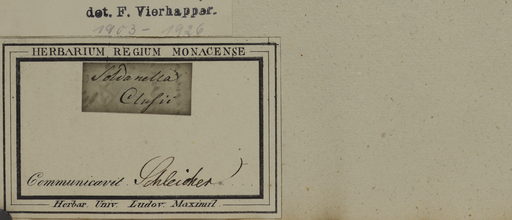 det. F. Vierhapper.
1903 - 1926
HERBARIUM REGIUM MONACENSE
Soldanella
Clusii
Communicavit Schleicher
Herbar. Univ. Ludov. Maximil.